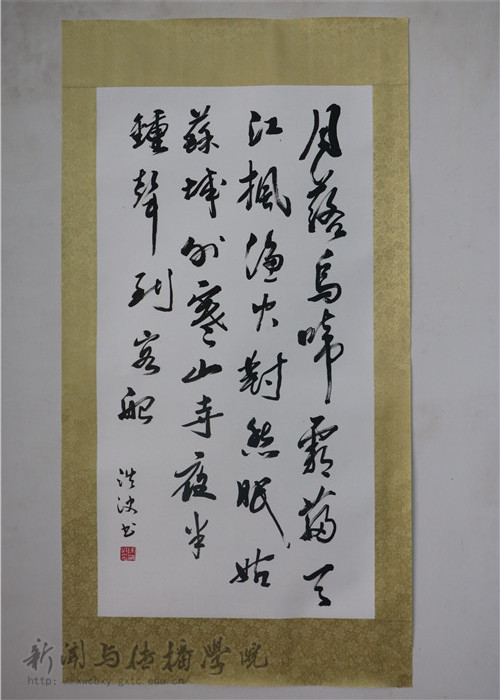 月落烏啼霜滿天
江楓漁火對愁眠姑
蘇城外寒山寺夜半
鐘聲到客船
洪波书
新闻与传播学院
http://xwcbxy.gxtc.edu.cn/